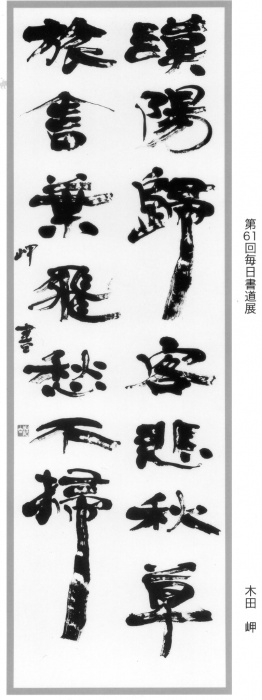 漢陽歸客悲秋草
旅舍葉飛愁不掃
岬書
第61回毎日書道展
木田 岬